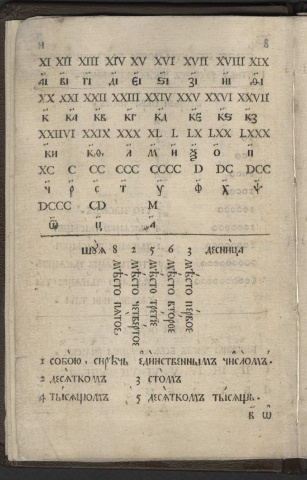 и 8
XI XII XIII XIV XV XVI XVII XVIII XIX
а҃і в҃і г҃і д҃і є҃і ѕ҃і з҃і и҃і ѳ҃і
XX XXI XXII XXIII XXIV XXV XXVI XXVII
к҃ к҃а к҃в к҃г к҃д к҃є к҃ѕ к҃з
XXIIVI XXIX XXX XL L LX LXX LXXX
к҃и к҃ѳ л҃ м҃ н҃ ѯ҃ о҃ п҃
XC C CC CCC CCCC D DC DCC
ч҃ р҃ с҃ т҃ у҃ ф҃ х҃ ѱ҃
DCCC CD M
ѿ҃ ц҃ ҂а҃
шꙋ́ѧ 8 2 5 6 3 десни́ца
мѣ́сто пѧ́тое
мѣ́сто четве́ртое
мѣ́сто тре́тїе
мѣ́сто второ́е
мѣ́сто пе́рвое
1 собо́ю, си́рѣчь є҆ди́нственнымъ число́мъ.
2 десѧ́ткомъ 3 сто́мъ
4 ты́сѧщномъ 5 десѧ́ткомъ ты́сѧщь.
в҃ ѿ